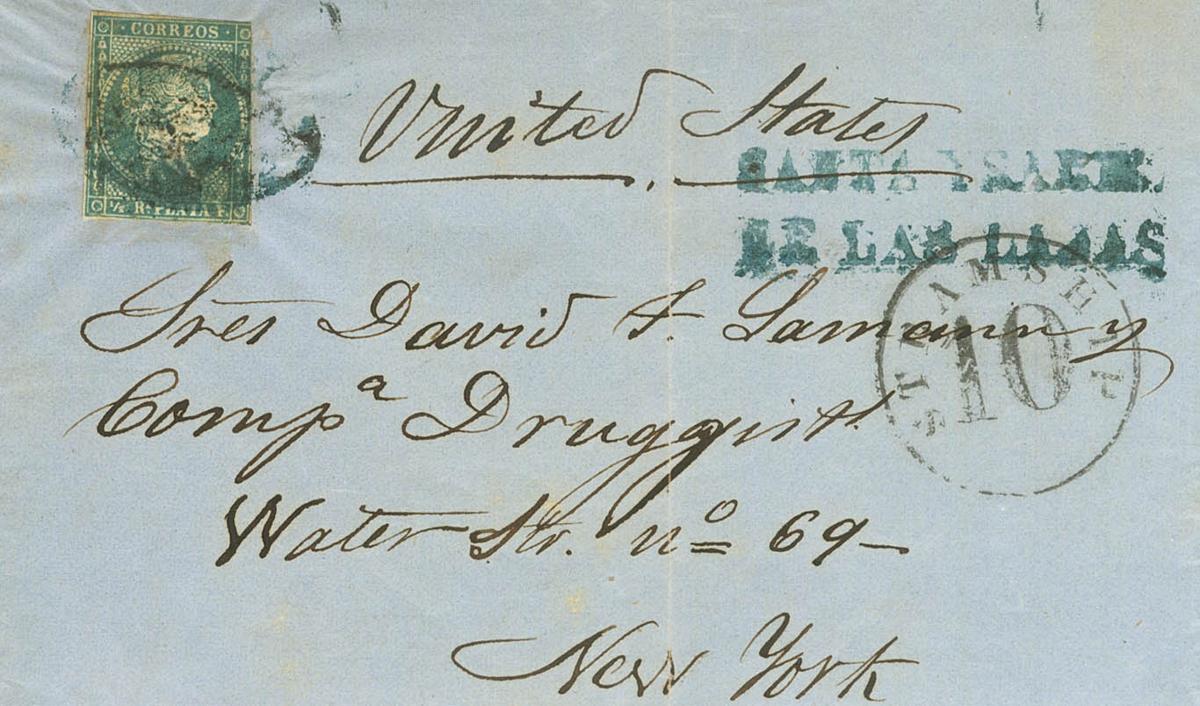 CORREOS
½ R. PLATA F.
United States
SANTA YSABEL
DE LAS LAJAS
STEAMSHIP
10
Sres David F. Lamann y
Compª Druggist
Water Str. nº 69
New York